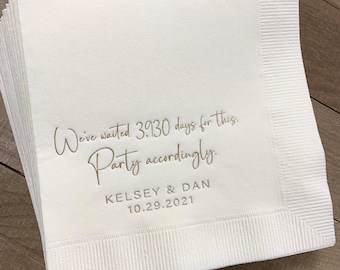 We've waited 3,930 days for this.
Party accordingly.
KELSEY & DAN
10.29.2021